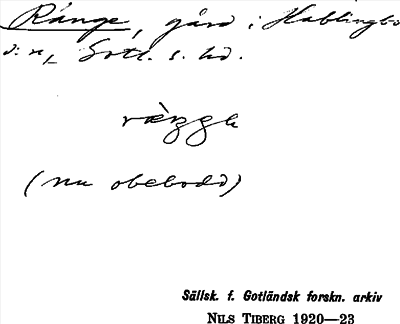 Ränge, gård i Hablingbo
s:n, Gotl. s. hd.
(nu obebodd)
Sällsk. f. Gotländsk forskn. arkiv
NILS TIBERG 1920—23